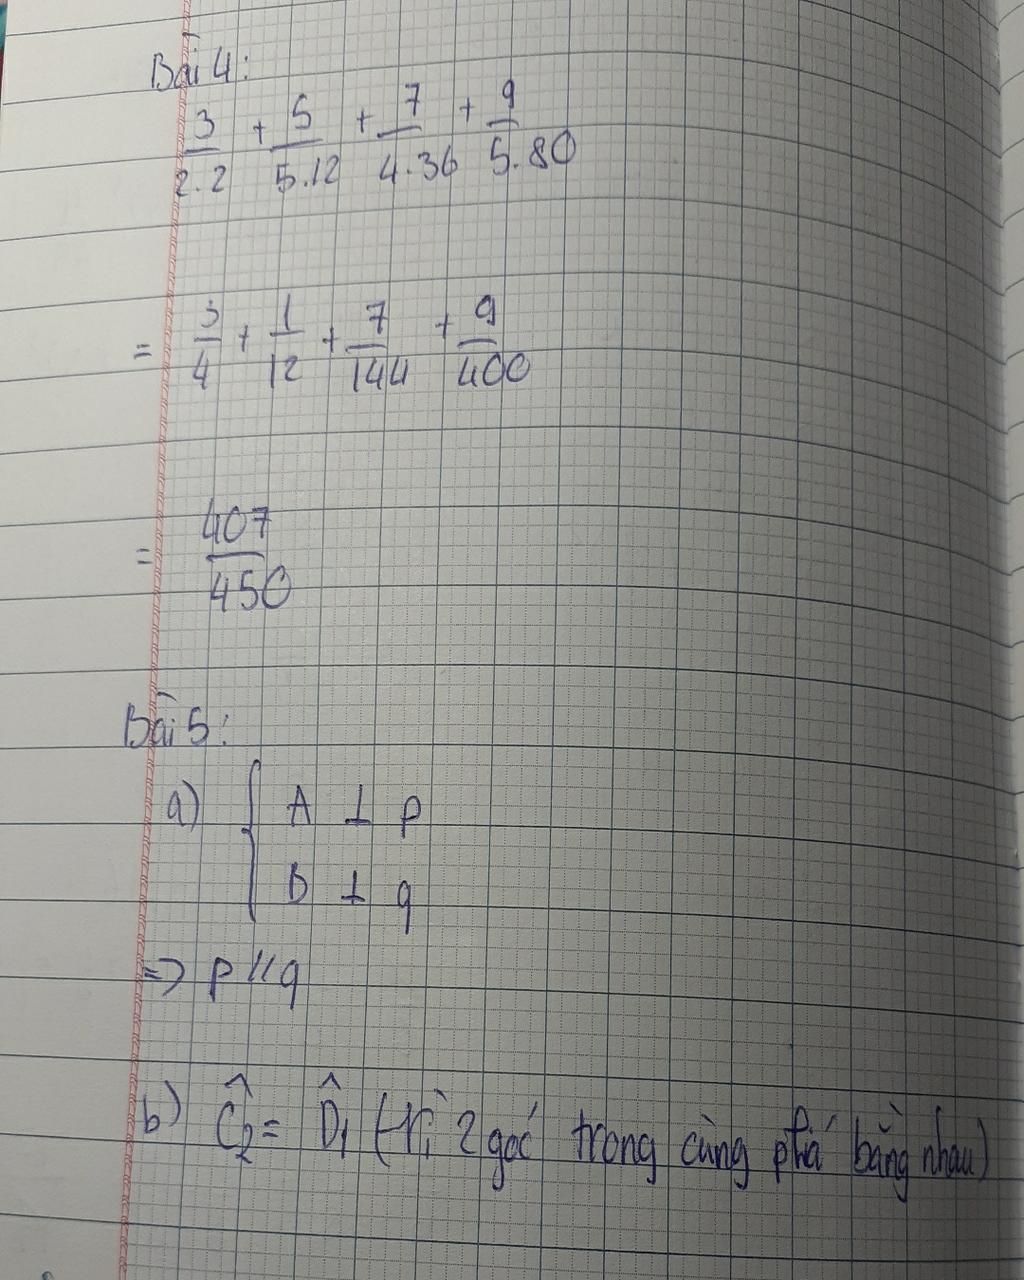 Bài 4:
3/2.2 + 5/5.12 + 7/4.36 + 9/5.80
= 3/4 + 1/12 + 7/144 + 9/400
= 407/450
Bài 5:
a) { A ⊥ p
B ⊥ q
=> p // q
b) Ĉ₂ = D̂₁ (Vì 2 góc trong cùng phía bằng nhau)